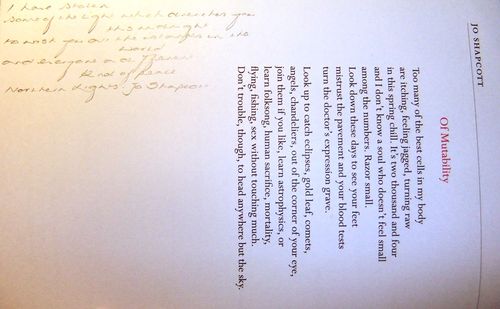 JO SHAPCOTT
Of Mutability
Too many of the best cells in my body
are itching, feeling jagged, turning raw
in this spring chill. It's two thousand and four
and I don't know a soul who doesn't feel small
among the numbers. Razor small.
Look down these days to see your feet
mistrust the pavement and your blood tests
turn the doctor's expression grave.
Look up to catch eclipses, gold leaf, comets,
angels, chandeliers, out of the corner of your eye,
join them if you like, learn astrophysics, or
learn folksong, human sacrifice, mortality,
flying, fishing, sex without touching much.
Don't trouble, though, to head anywhere but the sky.
I have stolen
some of the light which drenches you
this midnight
to you over the in the
world
and everyone
kind of peace
Northern Lights. Jo Shapcott